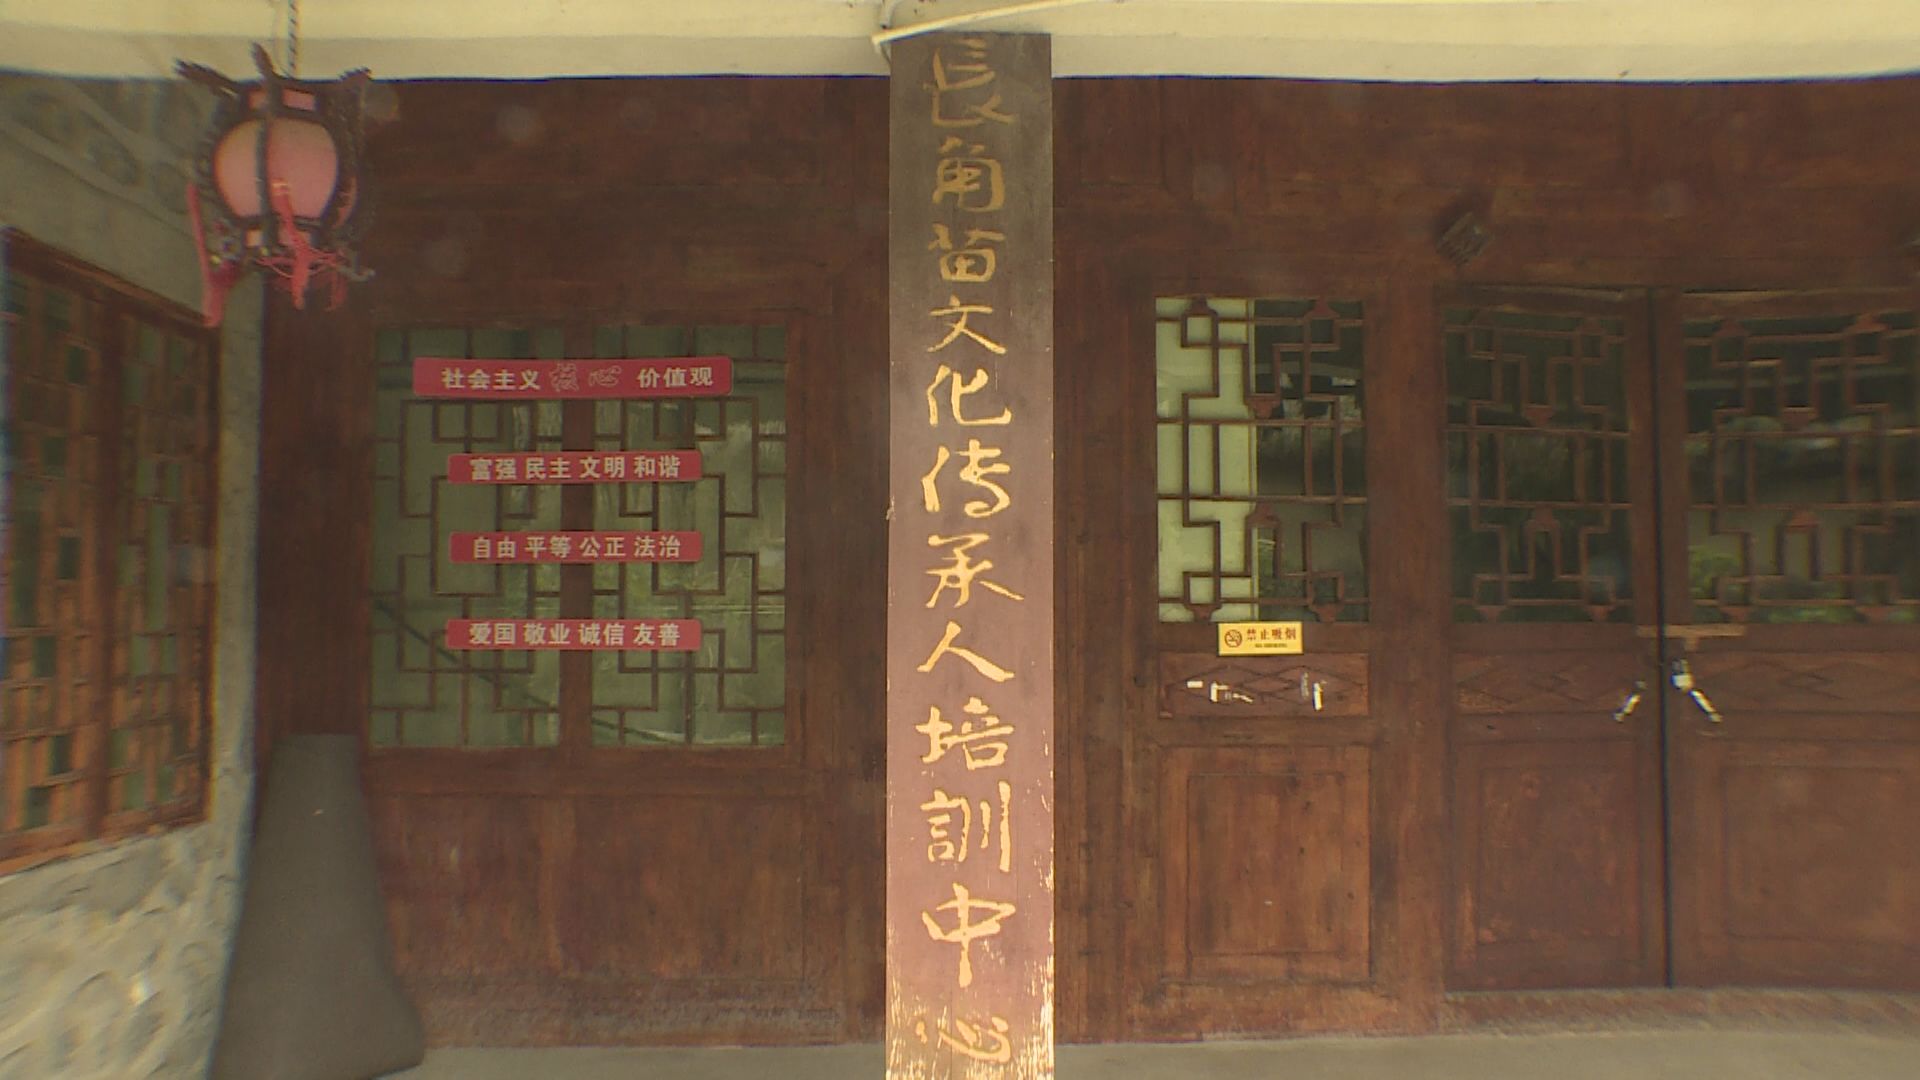 社会主义 核心 价值观
富强 民主 文明 和谐
自由 平等 公正 法治
爱国 敬业 诚信 友善
長角苗文化传承人培訓中心
禁止吸烟